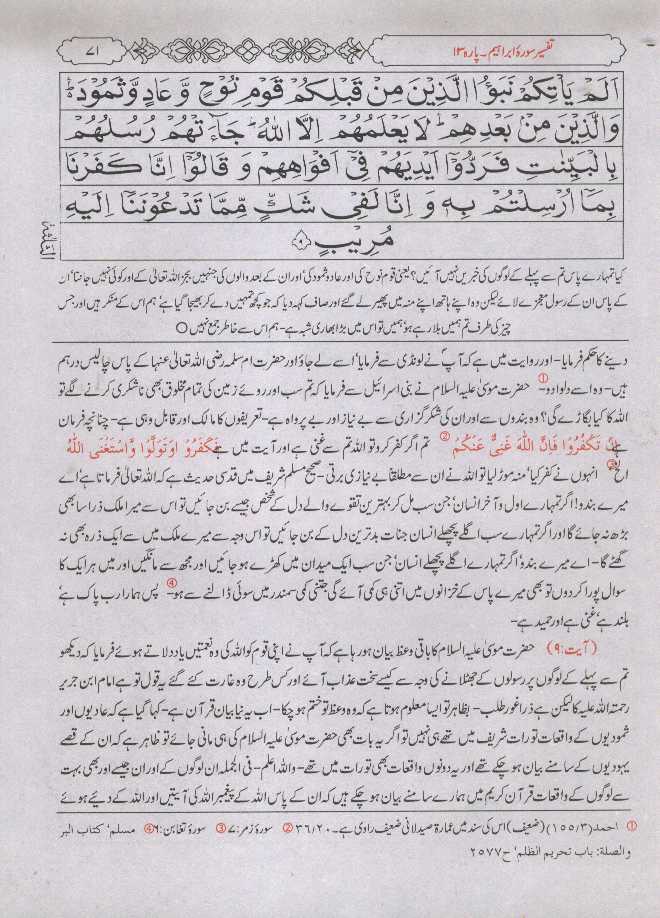 تفسیر سورۂ ابراہیم۔ پارہ ۱۳
۷۱
اَلَمْ یَاْتِكُمْ نَبَؤُا الَّذِیْنَ مِنْ قَبْلِكُمْ قَوْمِ نُوْحٍ وَّعَادٍ وَّثَمُوْدَ ۛؕ
وَالَّذِیْنَ مِنْۢ بَعْدِهِمْ ۛؕ لَا یَعْلَمُهُمْ اِلَّا اللّٰهُ ؕ جَآءَتْهُمْ رُسُلُهُمْ
بِالْبَیِّنٰتِ فَرَدُّوْۤا اَیْدِیَهُمْ فِیْۤ اَفْوَاهِهِمْ وَ قَالُوْۤا اِنَّا كَفَرْنَا
بِمَاۤ اُرْسِلْتُمْ بِهٖ وَ اِنَّا لَفِیْ شَكٍّ مِّمَّا تَدْعُوْنَنَاۤ اِلَیْهِ
مُرِیْبٍ ۹
کیا تمہارے پاس تم سے پہلے کے لوگوں کی خبریں نہیں آئیں؟ یعنی قوم نوح کی اور عاد و ثمود کی' اور ان کے بعد والوں کی جنہیں بجز اللہ تعالیٰ کے اور کوئی نہیں جانتا' ان
کے پاس ان کے رسول معجزے لائے لیکن وہ اپنے ہاتھ اپنے منہ میں پھیر لے گئے اور صاف کہہ دیا کہ جو کچھ تمہیں دے کر بھیجا گیا ہے' ہم اس کے منکر ہیں اور جس
چیز کی طرف تم ہمیں بلا رہے ہو' ہمیں تو اس میں بڑا بھاری شبہ ہے- ہم اس سے خاطر جمع نہیں ○
دینے کا حکم فرمایا- اور روایت میں ہے کہ آپؐ نے لونڈی سے فرمایا' اسے لے جاؤ اور حضرت ام سلمہ رضی اللہ تعالیٰ عنہا کے پاس چالیس درہم
ہیں- وہ اسے دلوا دو- ① حضرت موسیٰ علیہ السلام نے بنی اسرائیل سے فرمایا کہ تم سب اور روئے زمین کی تمام مخلوق بھی ناشکری کرنے لگے تو
اللہ کا کیا بگاڑے گی؟ وہ بندوں سے اور ان کی شکر گزاری سے بے نیاز اور بے پرواہ ہے- تعریفوں کا مالک اور قابل وہی ہے- چنانچہ فرمان
ہے اِنْ تَكْفُرُوْا فَاِنَّ اللّٰهَ غَنِیٌّ عَنْكُمْ ② تم اگر کفر کرو تو اللہ تم سے غنی ہے اور آیت میں ہے فَكَفَرُوْا وَتَوَلَّوْا وَّاسْتَغْنَی اللّٰهُ
الخ ③ انہوں نے کفر کیا' منہ موڑ لیا تو اللہ نے ان سے مطلقا بے نیازی برتی- صحیح مسلم شریف میں قدسی حدیث ہے کہ اللہ تعالیٰ فرماتا ہے' اے
میرے بندو! اگر تمہارے اول و آخر انسان' جن سب مل کر بہترین تقوے والے دل کے شخص جیسے بن جائیں تو اس سے میرا ملک ذرا سا بھی
بڑھ نہ جائے گا اور اگر تمہارے سب اگلے پچھلے انسان جنات بدترین دل کے بن جائیں تو اس وجہ سے میرے ملک میں سے ایک ذرہ بھی نہ
گھٹے گا- اے میرے بندو' اگر تمہارے اگلے پچھلے انسان' جن سب ایک میدان میں کھڑے ہو جائیں اور مجھ سے مانگیں اور میں ہر ایک کا
سوال پورا کر دوں تو بھی میرے پاس کے خزانوں میں اتنی ہی کمی آئے گی جتنی کمی سمندر میں سوئی ڈالنے سے ہو- ④ پس ہمارا رب پاک ہے'
بلند ہے' غنی ہے اور حمید ہے-
(آیت:۹) حضرت موسیٰ علیہ السلام کا باقی وعظ بیان ہو رہا ہے کہ آپ نے اپنی قوم کو اللہ کی وہ نعمتیں یاد دلاتے ہوئے فرمایا کہ دیکھو
تم سے پہلے کے لوگوں پر رسولوں کے جھٹلانے کی وجہ سے کیسے سخت عذاب آئے اور کس طرح وہ غارت کئے گئے یہ قول تو ہے امام ابن جریر
رحمتہ اللہ علیہ کا لیکن ہے ذرا غور طلب- بظاہر تو ایسا معلوم ہوتا ہے کہ وہ وعظ تو ختم ہو چکا- اب یہ نیا بیان قرآن ہے- کہا گیا ہے کہ عادیوں اور
ثمودیوں کے واقعات تورات شریف میں تھے ہی نہیں تو اگر یہ بات بھی حضرت موسیٰ علیہ السلام کی ہی مانی جائے تو ظاہر ہے کہ ان کے قصے
یہودیوں کے سامنے بیان ہو چکے تھے اور یہ دونوں واقعات بھی تورات میں تھے- واللہ اعلم- فی الجملہ ان لوگوں کے اور ان جیسے اور بھی بہت
سے لوگوں کے واقعات قرآن کریم میں ہمارے سامنے بیان ہو چکے ہیں کہ ان کے پاس اللہ کے پیغمبر اللہ کی آیتیں اور اللہ کے دیئے ہوئے
① احمد (۳/۱۵۵) (ضعیف) اس کی سند میں عمارۃ صیدلانی ضعیف راوی ہے۔ ② ۳۶/۲۰ ③ سورۂ زمر:۷ ④ سورۂ تغابن:۶ مسلم' کتاب البر
والصلة: باب تحریم الظلم' ح۲۵۷۷